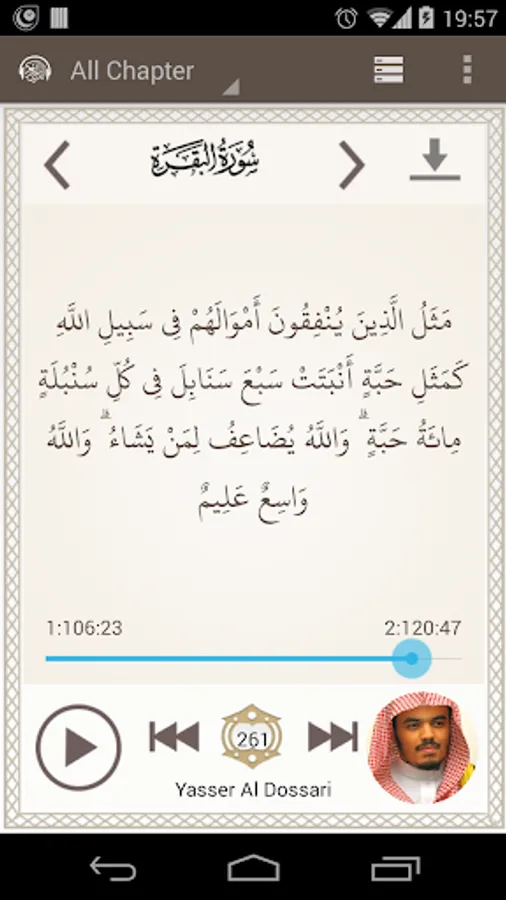 19:57
All Chapter
سُورَةُ البَقَرَة
مَثَلُ الَّذِينَ يُنْفِقُونَ أَمْوَالَهُمْ فِي سَبِيلِ اللَّهِ
كَمَثَلِ حَبَّةٍ أَنْبَتَتْ سَبْعَ سَنَابِلَ فِي كُلِّ سُنْبُلَةٍ
مِائَةُ حَبَّةٍ ۗ وَاللَّهُ يُضَاعِفُ لِمَنْ يَشَاءُ ۗ وَاللَّهُ
وَاسِعٌ عَلِيمٌ
1:106:23 2:120:47
261
Yasser Al Dossari